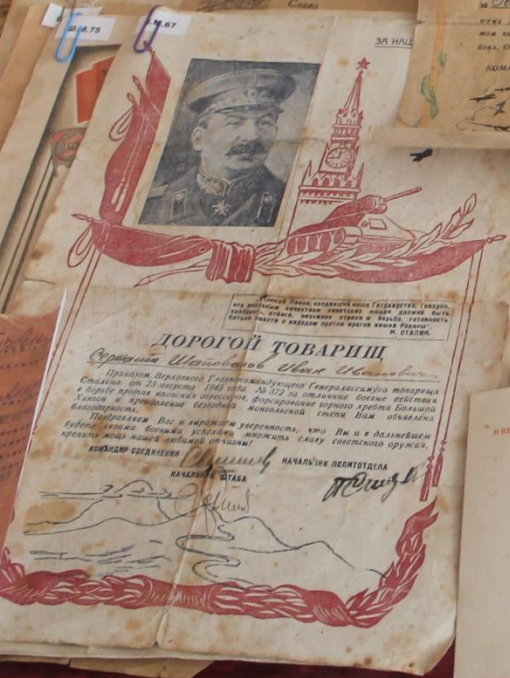 Ш.М.75
Ш.М.67
ЗА НАШ
КОМА
Великий Ленин, создавший наше Государство, говорил,
что основным качеством советских людей должна быть
храбрость, отвага, незнание страха в борьбе, готовность
биться вместе с народом против врагов нашей Родины".
И. СТАЛИН.
ДОРОГОЙ ТОВАРИЩ
Сержант Шаповалов Иван Иванович
Приказом Верховного Главнокомандующего Генералиссимуса товарища
Сталина от 23 августа 1945 года № 372 за отличные боевые действия
в борьбе против японских агрессоров, форсирование горного хребта Большой
Хинган и преодоление безводной монгольской степи Вам объявлена
благодарность.
Поздравляем Вас и выражаем уверенность, что Вы и в дальнейшем
будете своими боевыми успехами множить славу советского оружия,
крепить мощь нашей любимой отчизны!
КОМАНДИР СОЕДИНЕНИЯ НАЧАЛЬНИК ПОЛИТОТДЕЛА
НАЧАЛЬНИК ШТАБА